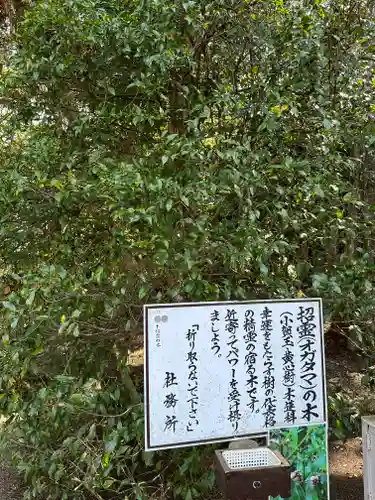 招霊(オガタマ)の木
(小賀玉・黄心樹)木蓮科
幸運をもたらす樹の代表格
の精霊の宿る木です。
近寄ってパワーを受け取り
ましょう。
「折り取らないで下さい」
社務所